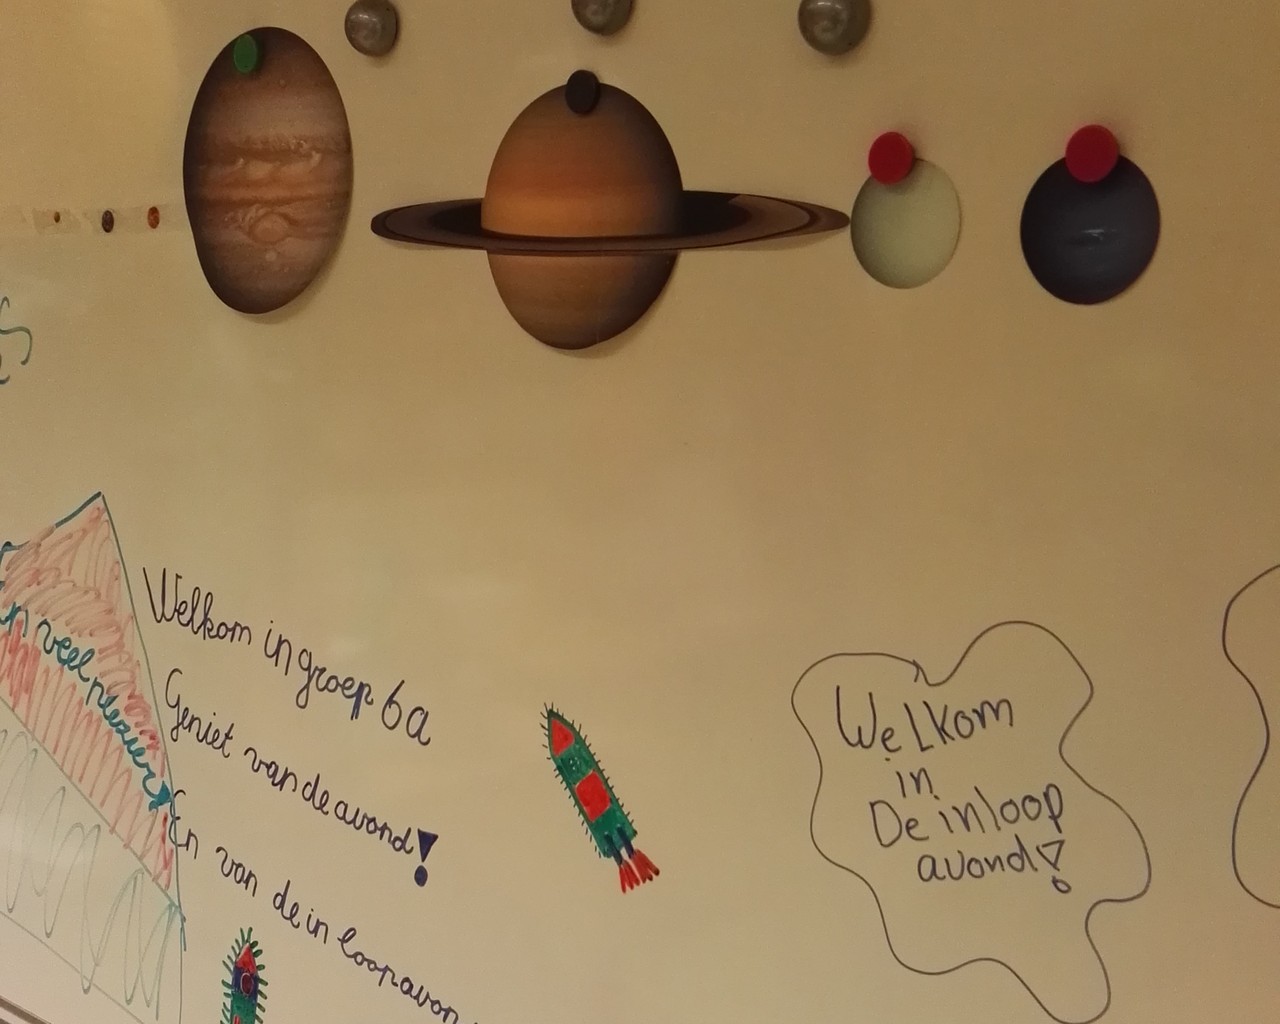 Welkom in groep 6a
Geniet van de avond!
En van de inloopavon
n veel plezier
Welkom
in
De inloop
avond!